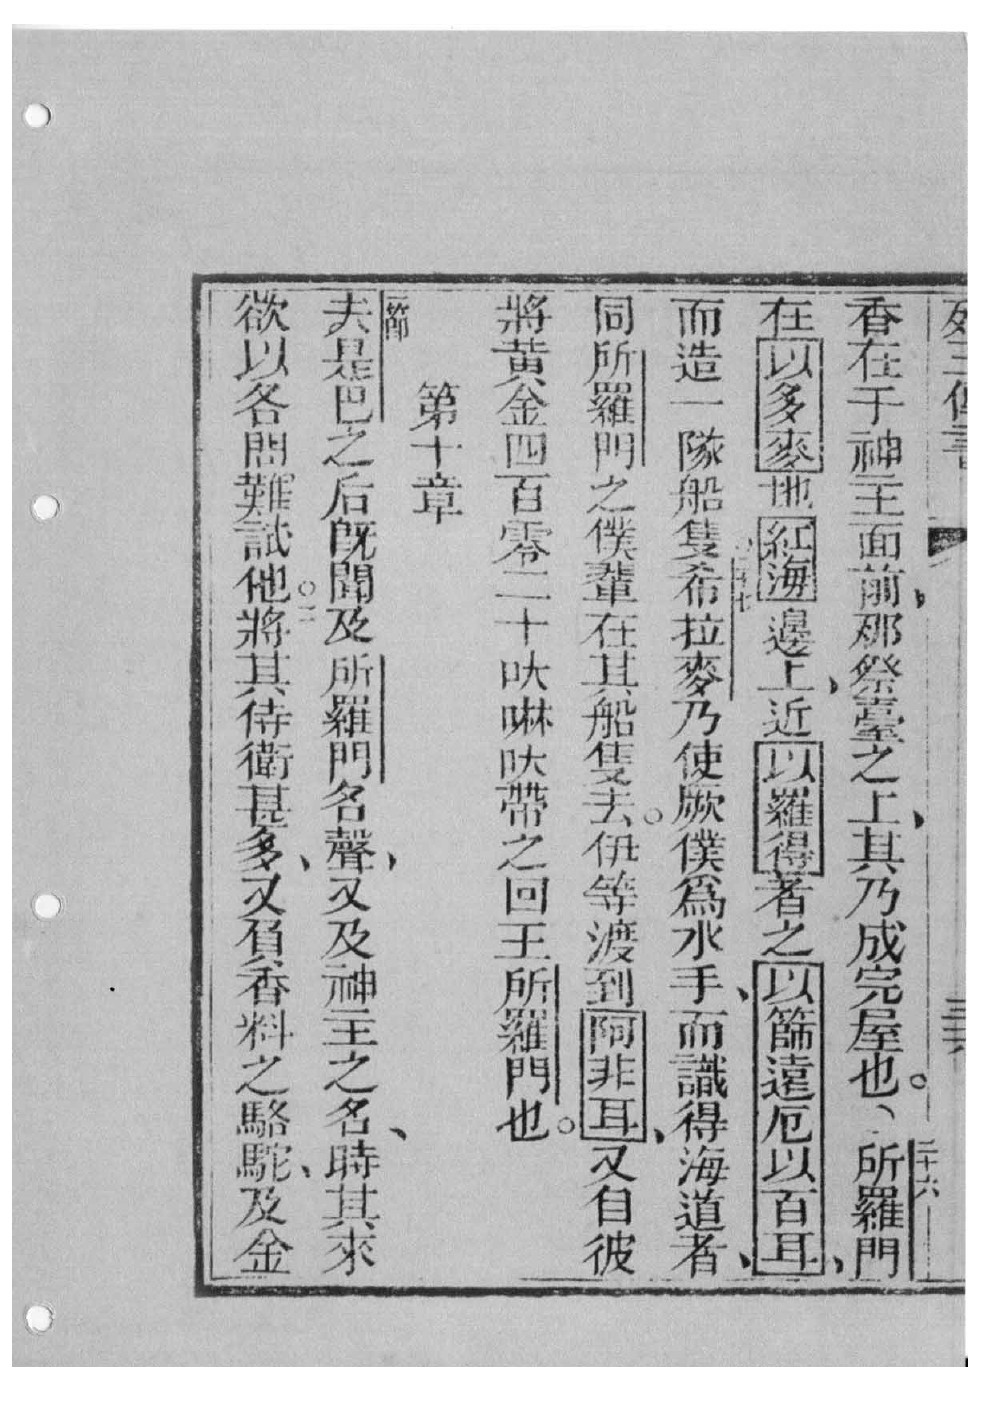 香在于神主面前、那祭臺之上、其乃成完屋也。、二十六所羅門
在以多麥地紅海邊上、近以羅得者之以篩遠厄以百耳、
而造一隊船隻二十七希拉麥乃使厥僕爲水手、而識得海道者、
同所羅門之僕輩在其船隻去。伊等渡到阿非耳、又自彼
將黃金四百零二十呔啉呔帶之回王所羅門也。
第十章
一節夫是巴之后旣聞及所羅門名聲、又及神主之名、時其來
欲以各問難試他。二將其侍衛甚多、又負香料之駱駝、及金